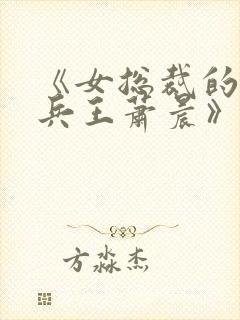 《女总裁的
兵王萧晨》
方淼杰